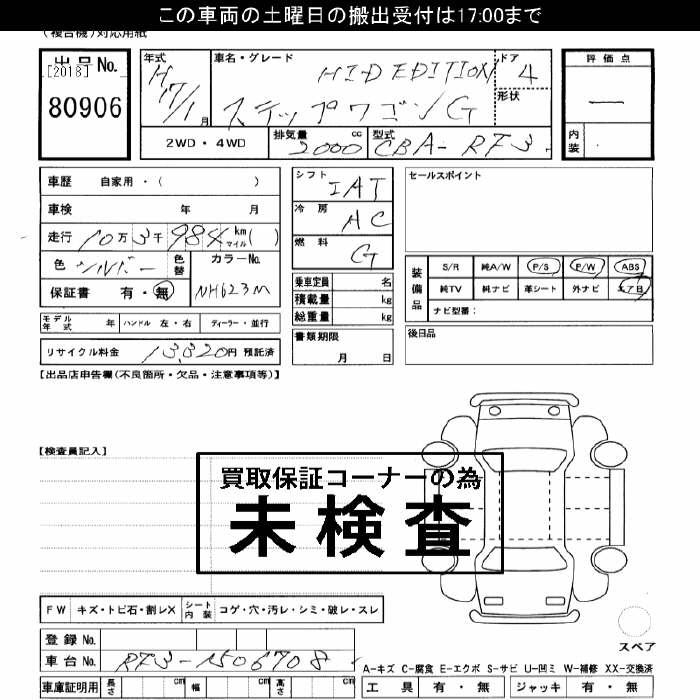 この車両の土曜日の搬出受付は17:00まで
(複合機)対応用紙
出品No.
[2018]
80906
年式 H17/1月
車名・グレード HID EDITION
ステップワゴンG
ドア 4
形状
評価点
—
内装
2WD・4WD
排気量 2000 cc
型式 CBA-RF3
車歴 自家用・( )
車検 年 月
走行 10万3千984 km マイル( )
色 シルバー 色替
カラーNo. NH623M
保証書 有・無
モデル年式 年 ハンドル 左・右 ディーラー・並行
リサイクル料金 13,820円 預託済
シフト IAT
冷房 AC
燃料 G
乗車定員 名
積載量 kg
総重量 kg
書類期限
月 日
セールスポイント
装備品
S/R 純A/W P/S P/W ABS
純TV 純ナビ 革シート 外ナビ エアB
ナビ型番:
後日品
【出品店申告欄(不良箇所・欠品・注意事項等)】
【検査員記入】
買取保証コーナーの為
未検査
FW キズ・トビ石・割レX シート内装 コゲ・穴・汚レ・シミ・破レ・スレ
登録No.
車台No. RF3-1506708
車庫証明用 長さ cm 幅 cm 高さ cm
スペア
A-キズ C-腐食 E-エクボ S-サビ U-凹ミ W-補修 XX-交換済
工具 有・無 ジャッキ 有・無